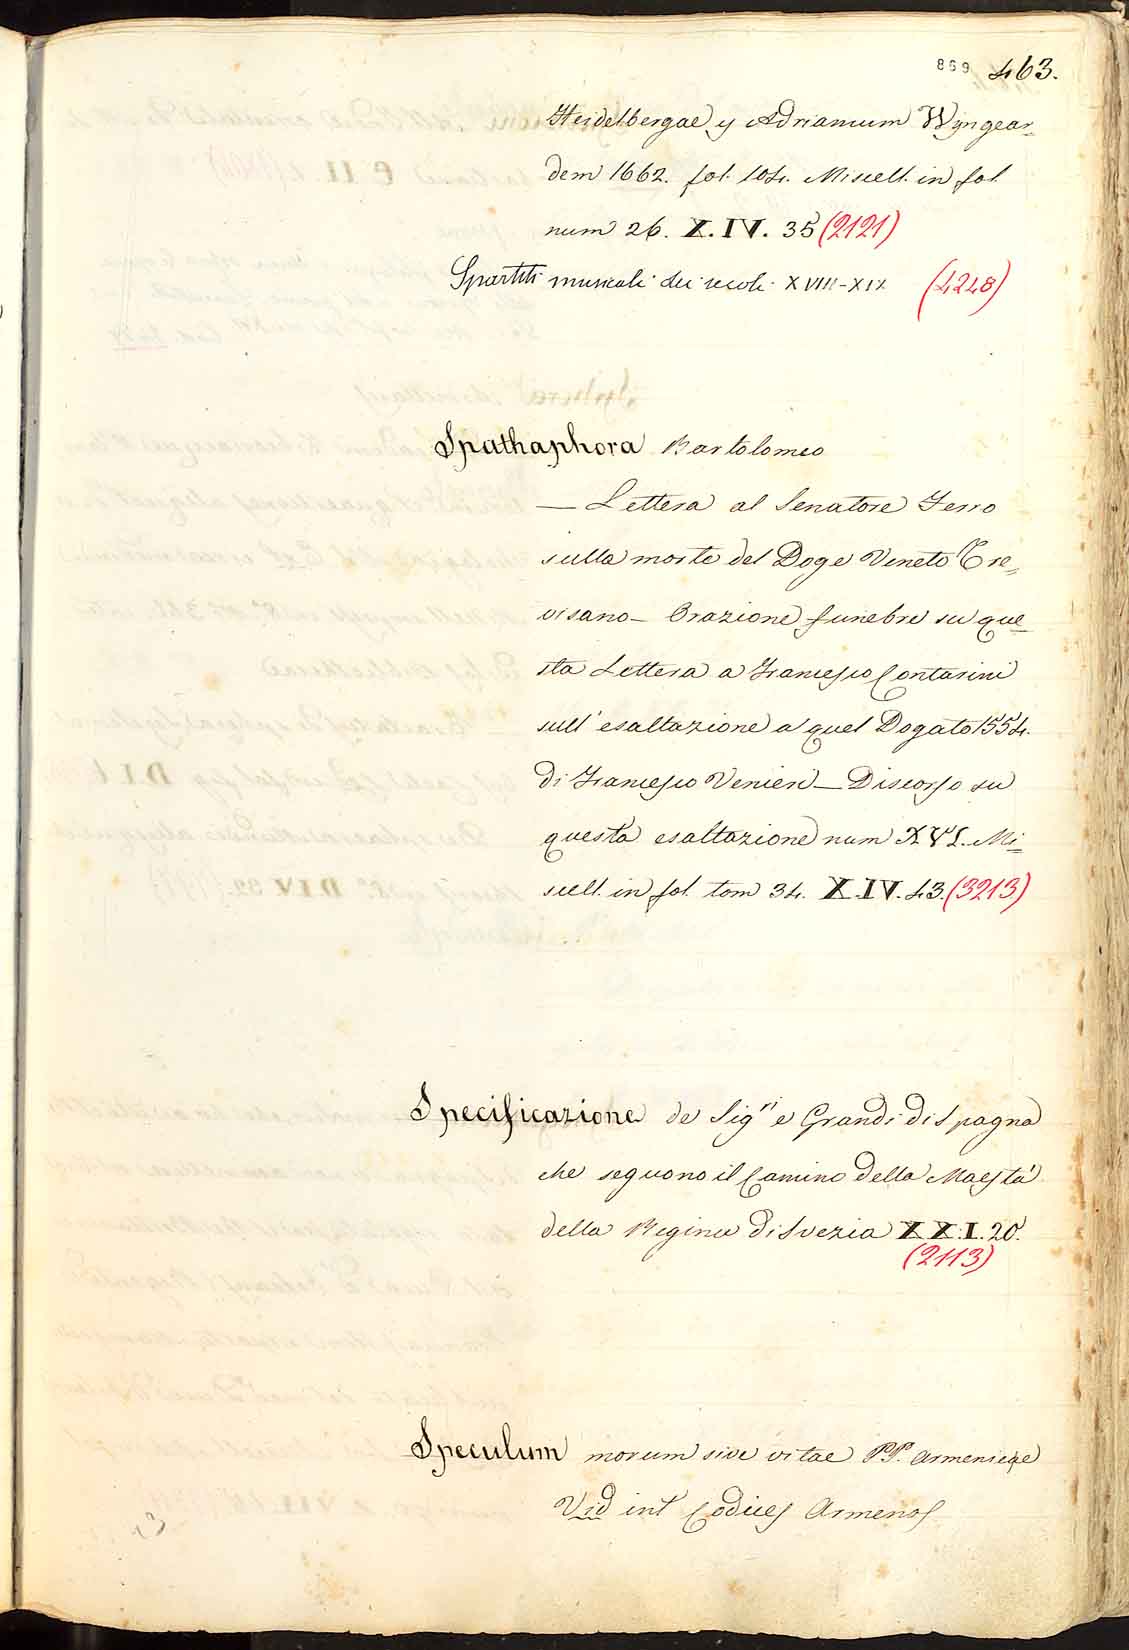 869 463.
Heidelbergae y Adrianum Wÿngear=
dem 1662. fol. 104. Miscell. in fol.
num 26. X. IV. 35 (2121)
Spartiti musicali dei secoli XVIII-XIX (4248)
Spathaphora Bartolomeo
— Lettera al Senatore Ferro
sulla morte del Doge Veneto Tre=
visano – Orazione funebre su que=
sta Lettera a Francesco Contarini
sull' esaltazione a quel Dogato 1554.
di Francesco Venieri – Discorso su
questa esaltazione num XVI. Mi=
scell. in fol. tom 34. X.IV. 43. (3213)
Specificazione de Sig.ri e Grandi di Spagna
che seguono il Camino della Maestà
della Regina di Svezia XX.I.20.
(2113)
Speculum morum sive vitae PP. Armeniae
Vid int Codices Armenos